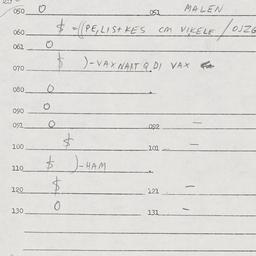 050 0 051 MALEN
060 $ -((PE,LIS+KES CM VIKELE / OJZG
061 0
070 $ )-VAXNAXT Q DI VAX
080 0
090 0
091 0 092 —
100 $ 101 —
110 $ )-HAM
120 $ 121 —
130 0 131 —